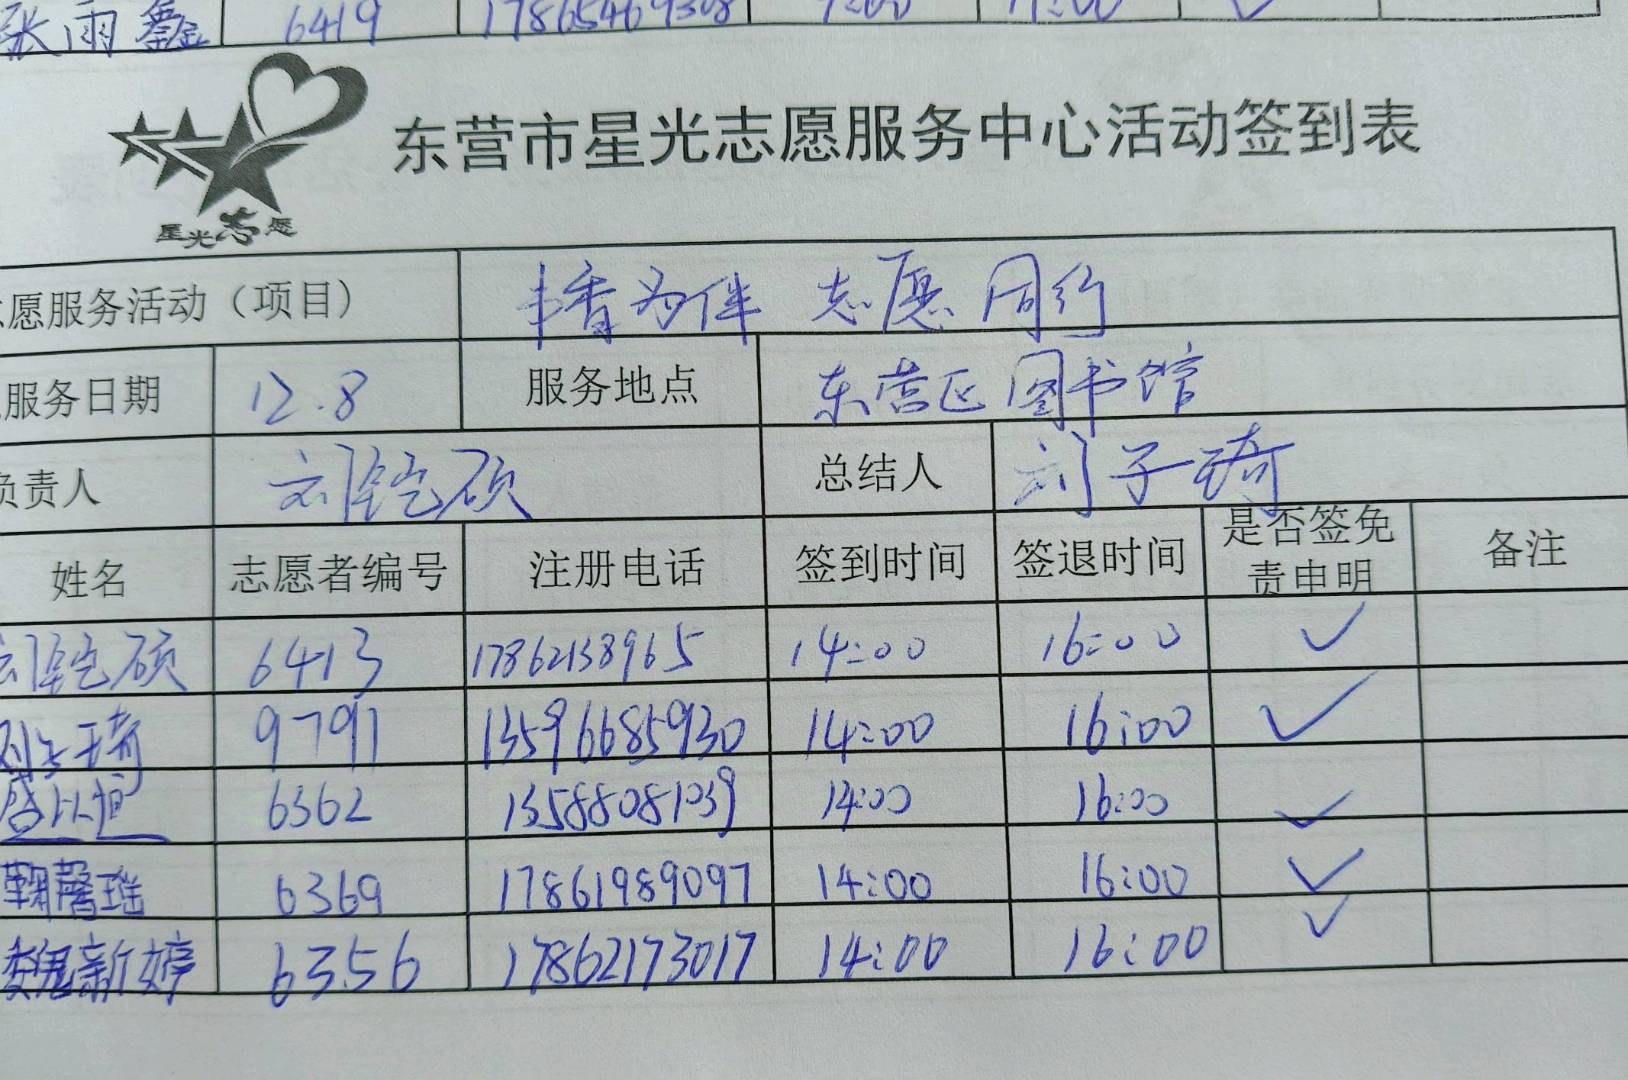 张雨鑫 6419 17865469308 9:00 11:00 ✓
星光志愿
东营市星光志愿服务中心活动签到表
愿服务活动（项目） 书香为伴 志愿同行
服务日期 12.8 服务地点 东营区图书馆
负责人 刘铠硕 总结人 刘子琦
姓名 志愿者编号 注册电话 签到时间 签退时间 是否签免责申明 备注
刘铠硕 6413 17862138965 14:00 16:00 ✓
刘子琦 9791 13596685930 14:00 16:00 ✓
6362 13588081039 14:00 16:00 ✓
鞠馨瑶 6369 17861989097 14:00 16:00 ✓
魏新婷 6356 17862173017 14:00 16:00 ✓